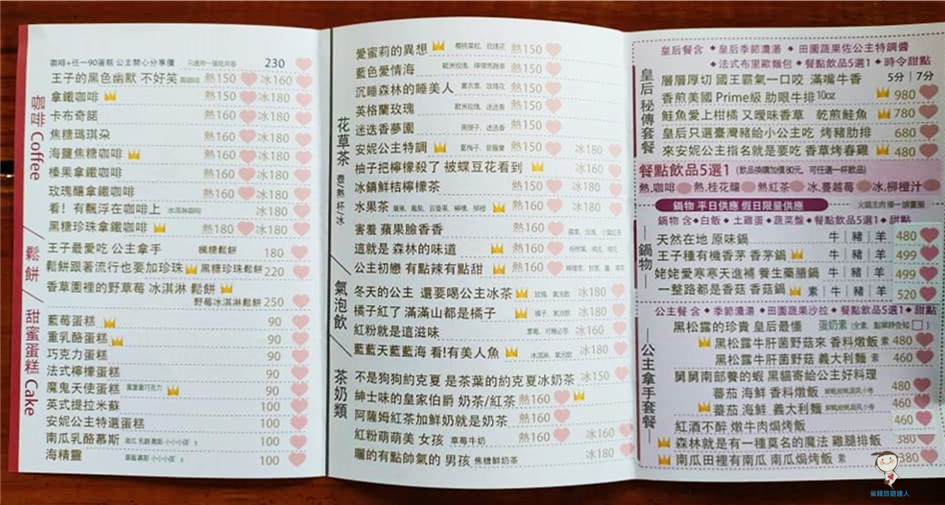 咖啡+任一90蛋糕 公主開心分享價 230
咖啡 Coffee
王子的黑色幽默 不好笑 熱150 冰160
拿鐵咖啡 熱150 冰180
卡布奇諾 熱160 冰180
焦糖瑪琪朵 熱160 冰180
海鹽焦糖咖啡 熱160 冰180
榛果拿鐵咖啡 熱160 冰180
玫瑰釀拿鐵咖啡 熱160 冰180
看！有飄浮在咖啡上 冰淇淋咖啡 冰180
黑糖珍珠拿鐵咖啡 熱160 冰180
鬆餅
王子最愛吃 公主拿手 楓糖鬆餅 180
鬆餅跟著流行也要加珍珠 黑糖珍珠鬆餅 220
香草園裡的野草莓 冰淇淋 鬆餅
野莓冰淇淋鬆餅 250
甜蜜蛋糕 Cake
藍莓蛋糕 90
重乳酪蛋糕 90
巧克力蛋糕 90
法式檸檬蛋糕 90
魔鬼天使蛋糕 90
英式提拉米蘇 100
安妮公主特選蛋糕 100
南瓜乳酪慕斯 100
海精靈 100
花草茶 壺/熱 杯/冰
愛蜜莉的異想 櫻桃果粒、玫瑰花 熱150
藍色愛情海 熱150
沉睡森林的睡美人 熱150
英格蘭玫瑰 歐洲玫瑰、迷迭香 熱150
迷迭香夢園 熱150
安妮公主特調 熱150 冰180
柚子把檸檬殺了 被蝶豆花看到 冰160
冰鎮鮮桔檸檬茶 熱150 冰180
水果茶 熱160 冰180
害羞 蘋果臉香香 熱160
這就是 森林的味道 熱160
公主初戀 有點辣有點甜 熱160
氣泡飲
冬天的公主 還要喝公主冰茶 玫瑰、氣泡飲 冰180
橘子紅了 滿滿山都是橘子 橘子、氣泡飲 冰180
紅粉就是這滋味 冰180
藍藍天藍藍海 看!有美人魚 冰淇淋、氣泡飲 冰180
茶奶類
不是狗狗約克夏 是茶葉的約克夏冰奶茶 冰150
紳士味的皇家伯爵 奶茶/紅茶 熱160
阿薩姆紅茶加鮮奶就是奶茶 熱160
紅粉萌萌美 女孩 草莓牛奶 熱160 冰180
曬的有點帥氣的 男孩 焦糖鮮奶茶 冰180
皇后餐含 ◆皇后季節濃湯 ◆田園蔬果佐公主特調醬
◆法式布里歐麵包 ◆餐點飲品5選1 ◆時令甜點
皇后秘傳套餐
層層厚切 國王霸氣一口咬 滿嘴牛香 5分 | 7分
香煎美國 Prime級 肋眼牛排10oz 980
鮭魚愛上柑橘 又曖昧香草 乾煎鮭魚 780
皇后只選臺灣豬給小公主吃 烤豬肋排 680
來安妮公主指名就是要吃 香草烤春雞 480
餐點飲品5選1 (飲品換購加價80元，可任選一杯飲品)
熱.咖啡 熱.桂花釀 熱.紅茶 冰.蔓越莓 冰.柳橙汁
鍋物 平日供應 假日限量供應
鍋物 含◆白飯 ◆土雞蛋◆蔬菜盤 ◆餐點飲品5選1 ◆甜點
鍋物
天然在地 原味鍋 牛 | 豬 | 羊 480
王子種有機香茅 香茅鍋 牛 | 豬 | 羊 499
姥姥愛寒寒天進補 養生藥膳鍋 牛 | 豬 | 羊 499
一整路都是香菇 香菇鍋 素 | 牛 | 豬 | 羊 520
公主餐 含◆季節濃湯 ◆田園蔬果沙拉 ◆餐點飲品5選1◆甜點
公主拿手套餐
黑松露的珍貴 皇后最懂
黑松露牛肝菌野菇來 香料燉飯 素 480
黑松露牛肝菌野菇 義大利麵 素 460
舅舅南部養的蝦 黑貓寄給公主好料理
蕃茄 海鮮 香料燉飯 480
蕃茄 海鮮 義大利麵 460
紅酒不醉 燉牛肉焗烤飯 460
森林就是有一種莫名的魔法 雞腿排飯 380
南瓜田裡有南瓜 南瓜焗烤飯 素 380
省錢旅遊達人